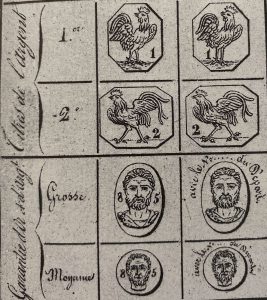 Titres de l'argent
1.er
1
2.e
2
2
Garantie
Grosse
8 5
avec le N° ..... du Départ.
Moyenne
8 5
avec le N°